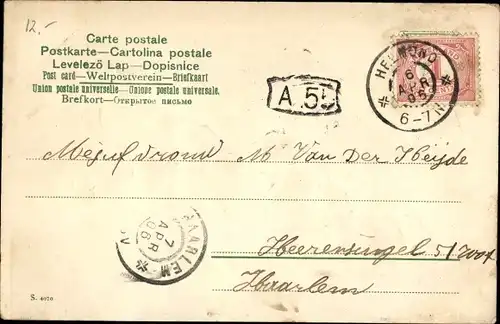 12.-
Carte postale
Postkarte—Cartolina postale
Levelező Lap—Dopisnice
Post card—Weltpostverein—Briefkaart
Union postale universelle—Unione postale universale.
Brefkort—Открытое письмо
A.55
HELMOND
6 APR 06
6-7N
M Van Der Heijde
HAARLEM
7 APR 06
Heerensingel
Haarlem
S. 4070